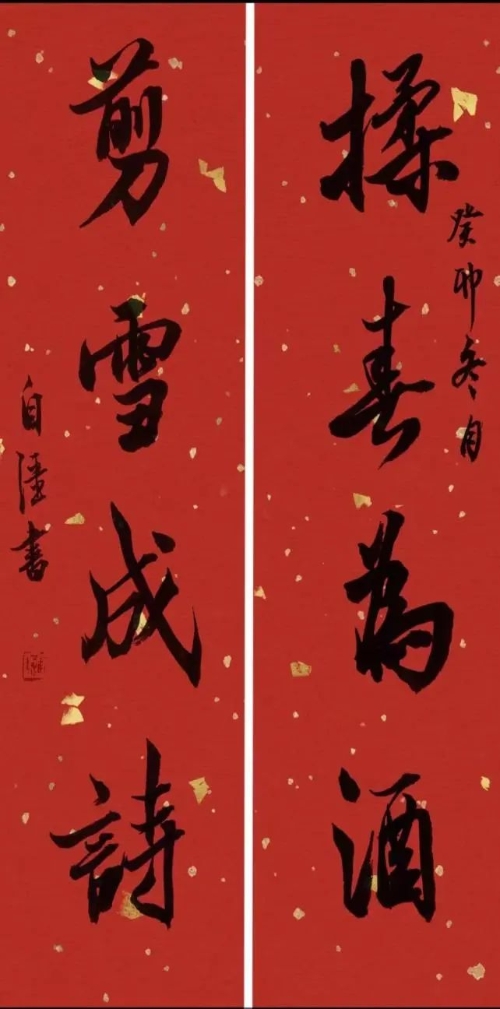 癸卯冬月
揉春為酒
剪雪成詩
自書